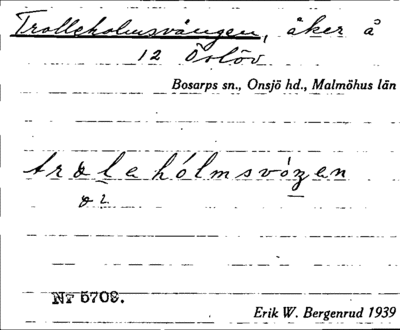 Trolleholmsvången, åker å
12 Örlöv
Bosarps sn., Onsjö hd., Malmöhus län
trolehólmsvóŋen
Nr 5709.
Erik W. Bergenrud 1939